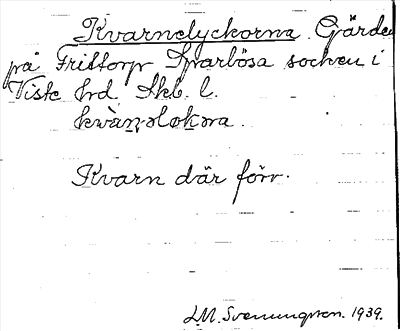 Kvarnelyckorna. Gärden
på Frittorp Sparlösa socken i
Viste hd. Skb. l.
kvàn̥əlok̥ora.
Kvarn där förr.
L.M. Svenungsson. 1939.